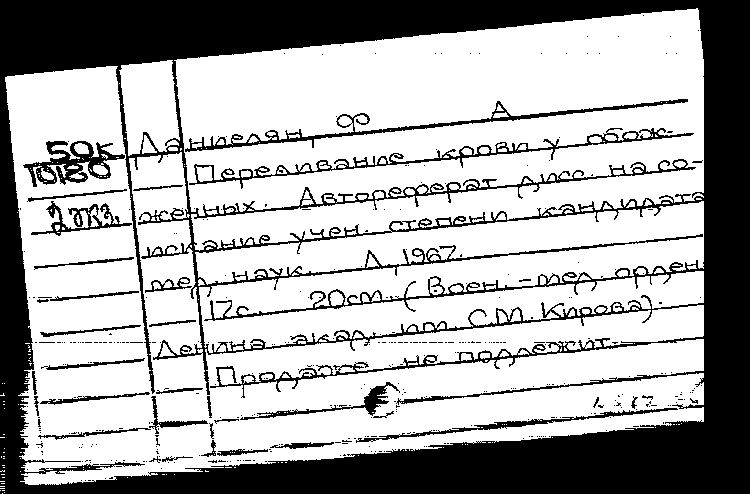 50к
10180
2 экз.
Даниелян, Ф А
Переливание крови у обож-
женных. Автореферат дисс. на со-
искание учен. степени кандидата
мед. наук. Л., 1967.
17с. 20см. (Воен.-мед. орден.
Ленина акад. им. С.М. Кирова).
Продаже не подлежит.